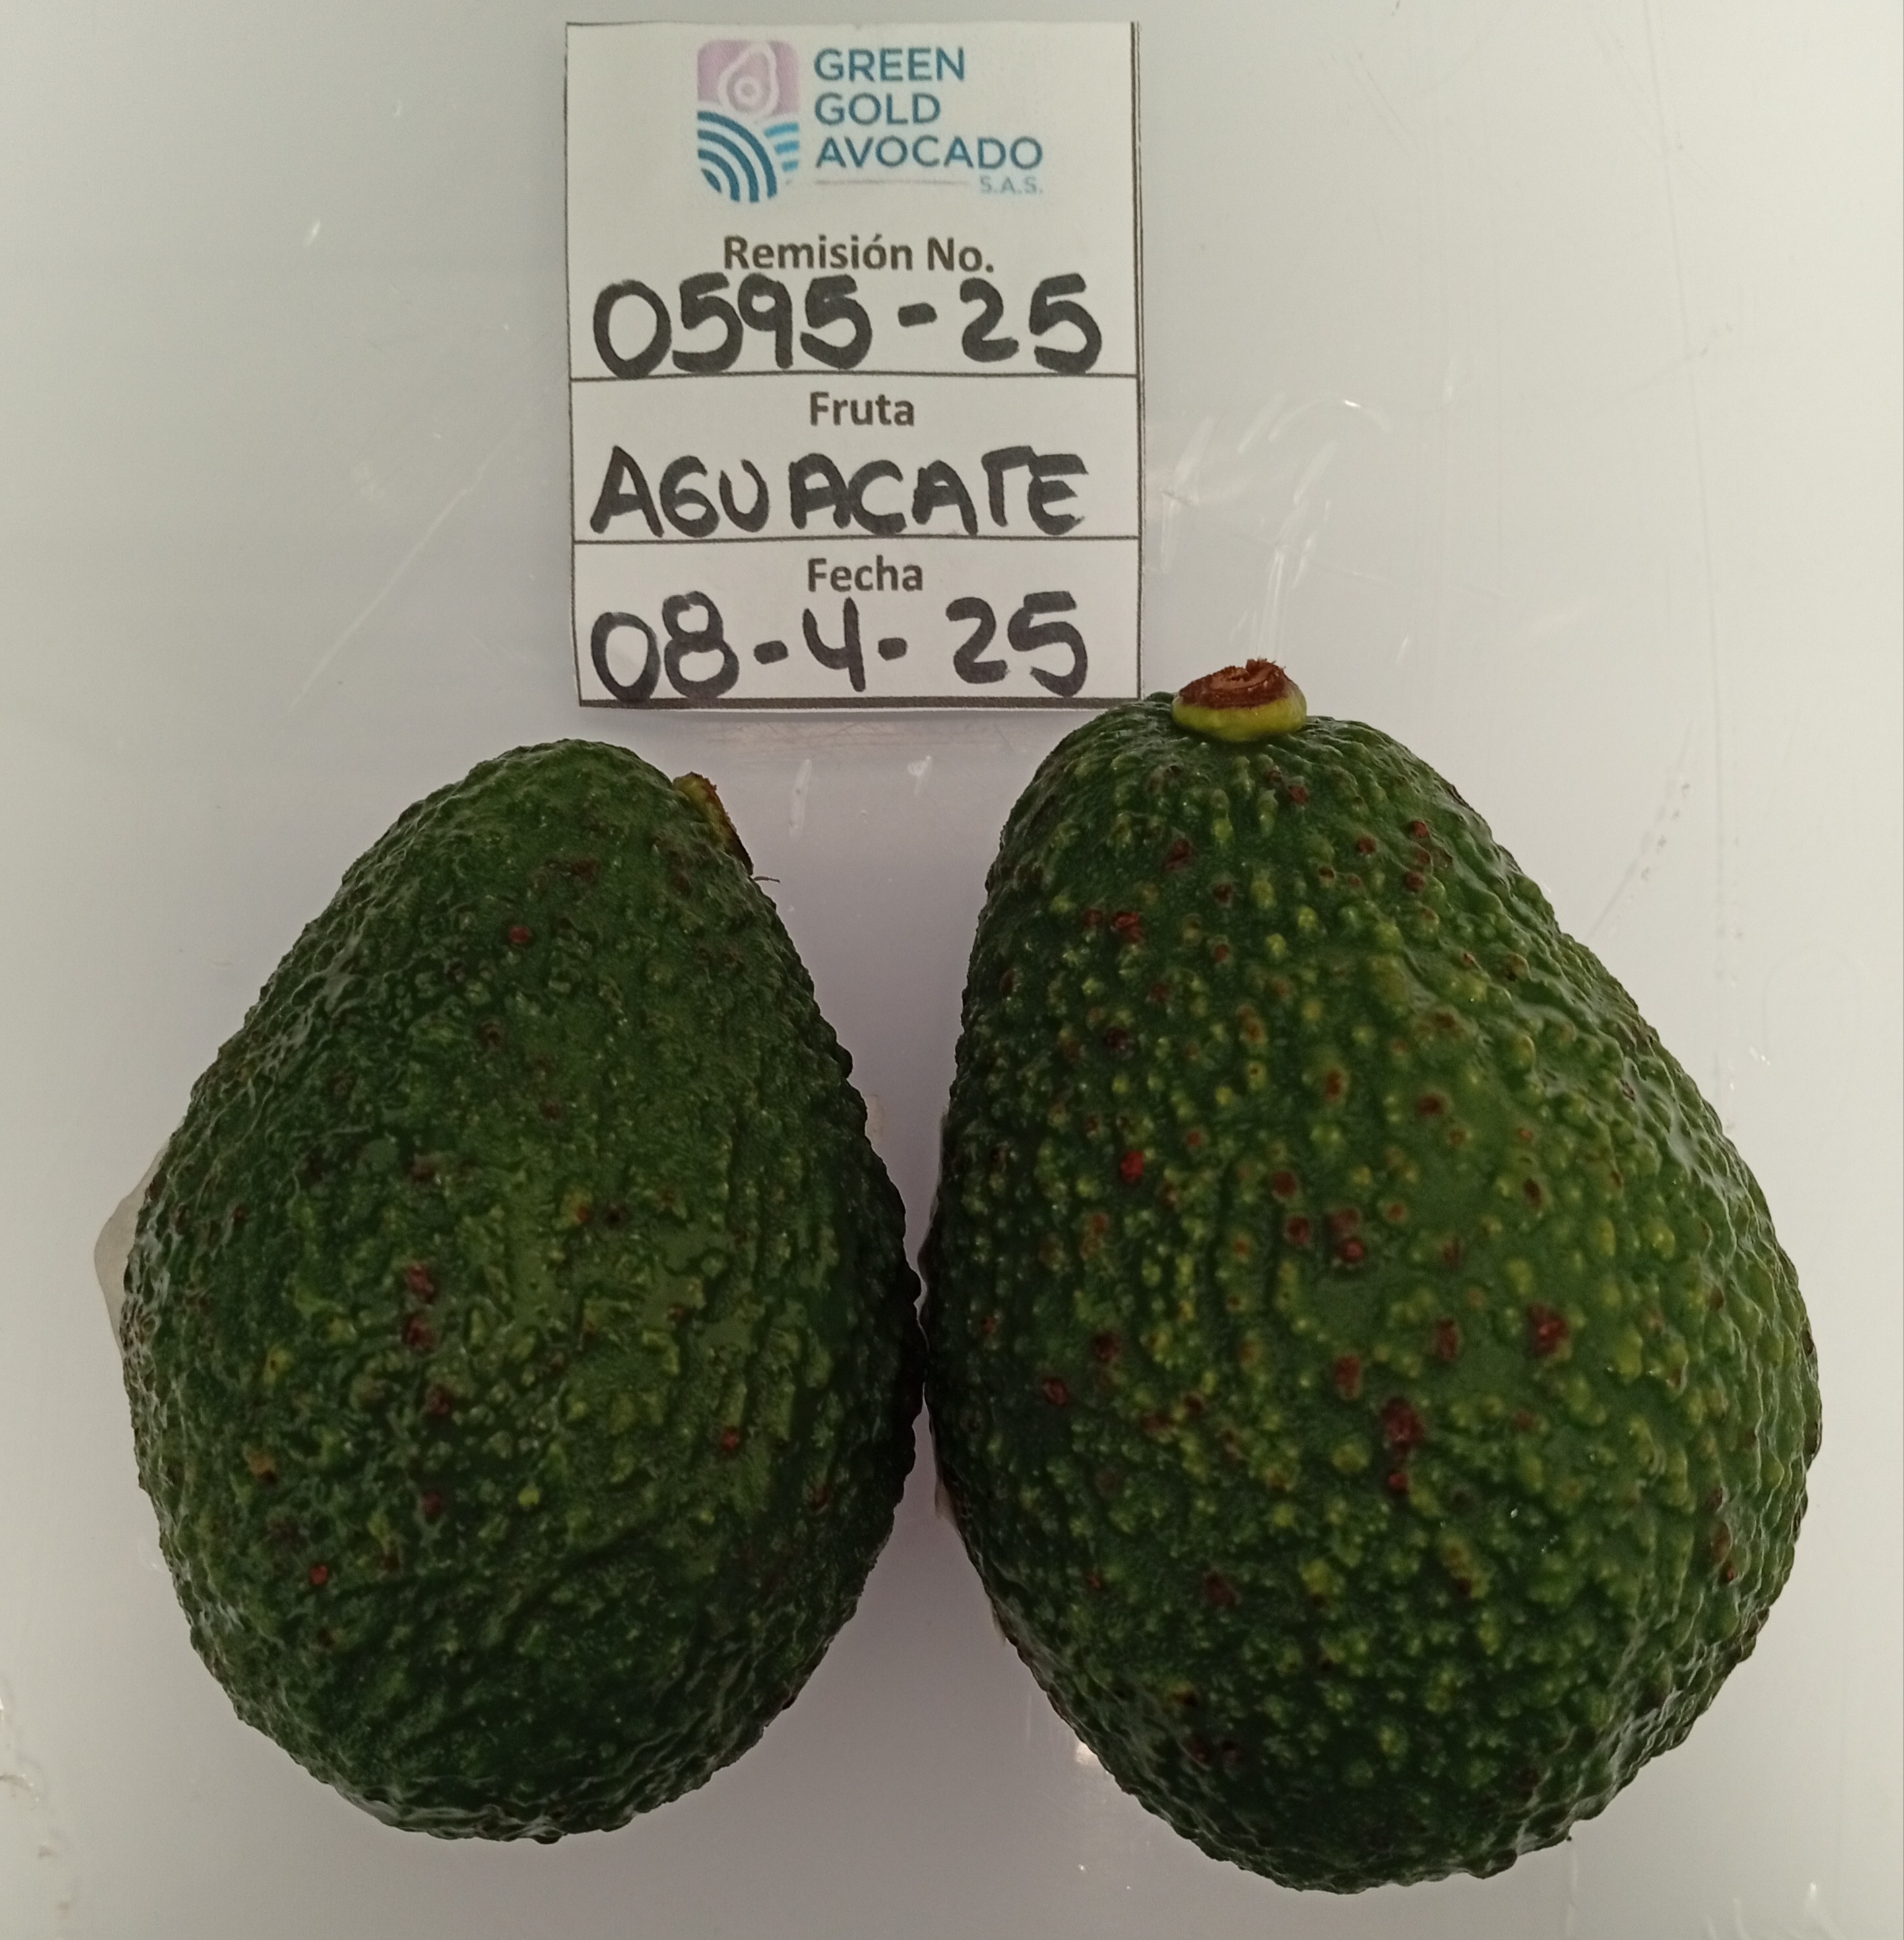 GREEN
GOLD
AVOCADO
S.A.S.
Remisión No.
0595-25
Fruta
AGUACATE
Fecha
08-4-25